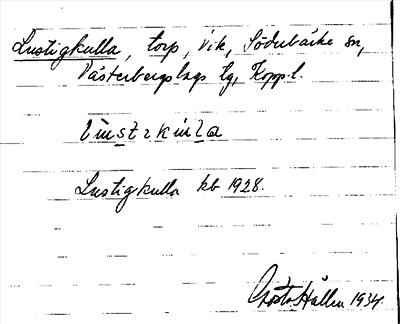 Lustigkulla, torp, Vik, Söderbärke sn,
Västerbergslags tg, Kopp. l.
Lustigkulla kb 1928.
Gösta Hallen 1934.